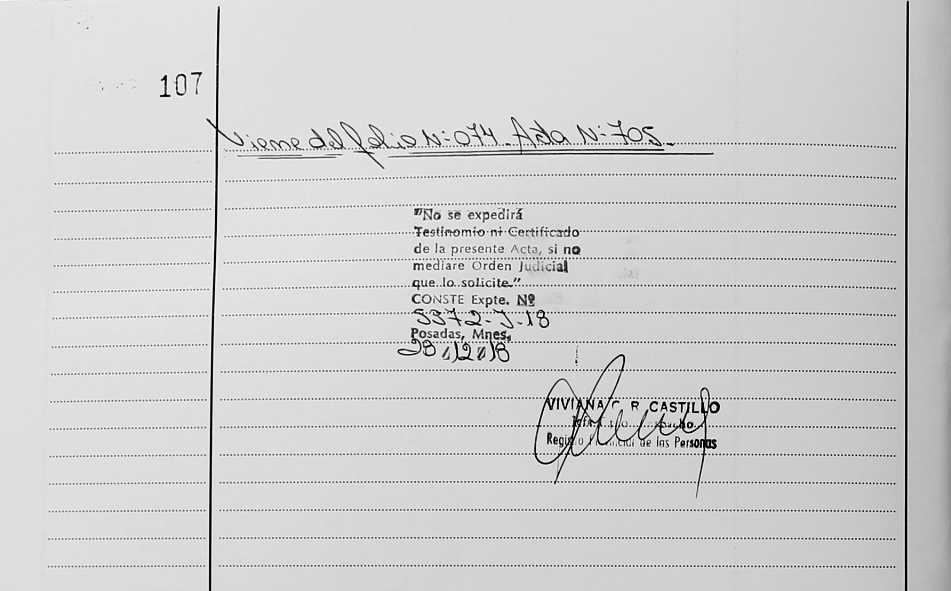 107
Viene del folio N: 074. Acta N: 705.
"No se expedirá
Testinomio ni Certificado
de la presente Acta, si no
mediare Orden Judicial
que lo solicite."
CONSTE Expte. Nº
5372-J-18
Posadas, Mnes,
28/12/18
VIVIANA C. R. CASTILLO
Registro Provincial de las Personas